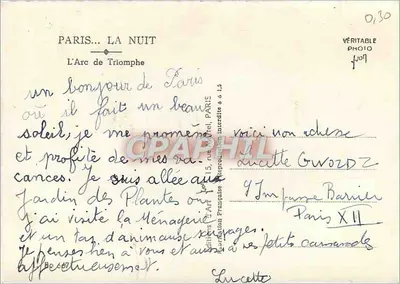 0,30
PARIS... LA NUIT
L'Arc de Triomphe
VÉRITABLE
PHOTO
un bonjour de Paris
où il fait un beau
soleil, je me promène
et profite de mes va
cances. Je suis allée au
Jardin des Plantes ou
j'ai visité la Ménagerie
et un tas d'animaux sauvages.
Je penses bien à vous et aussi à ses petits camarades
affectueusement.
Lucette
voici mon adresse
Lucette GWOZDZ
9 Impasse Barrier
Paris XII
CPAPHIL